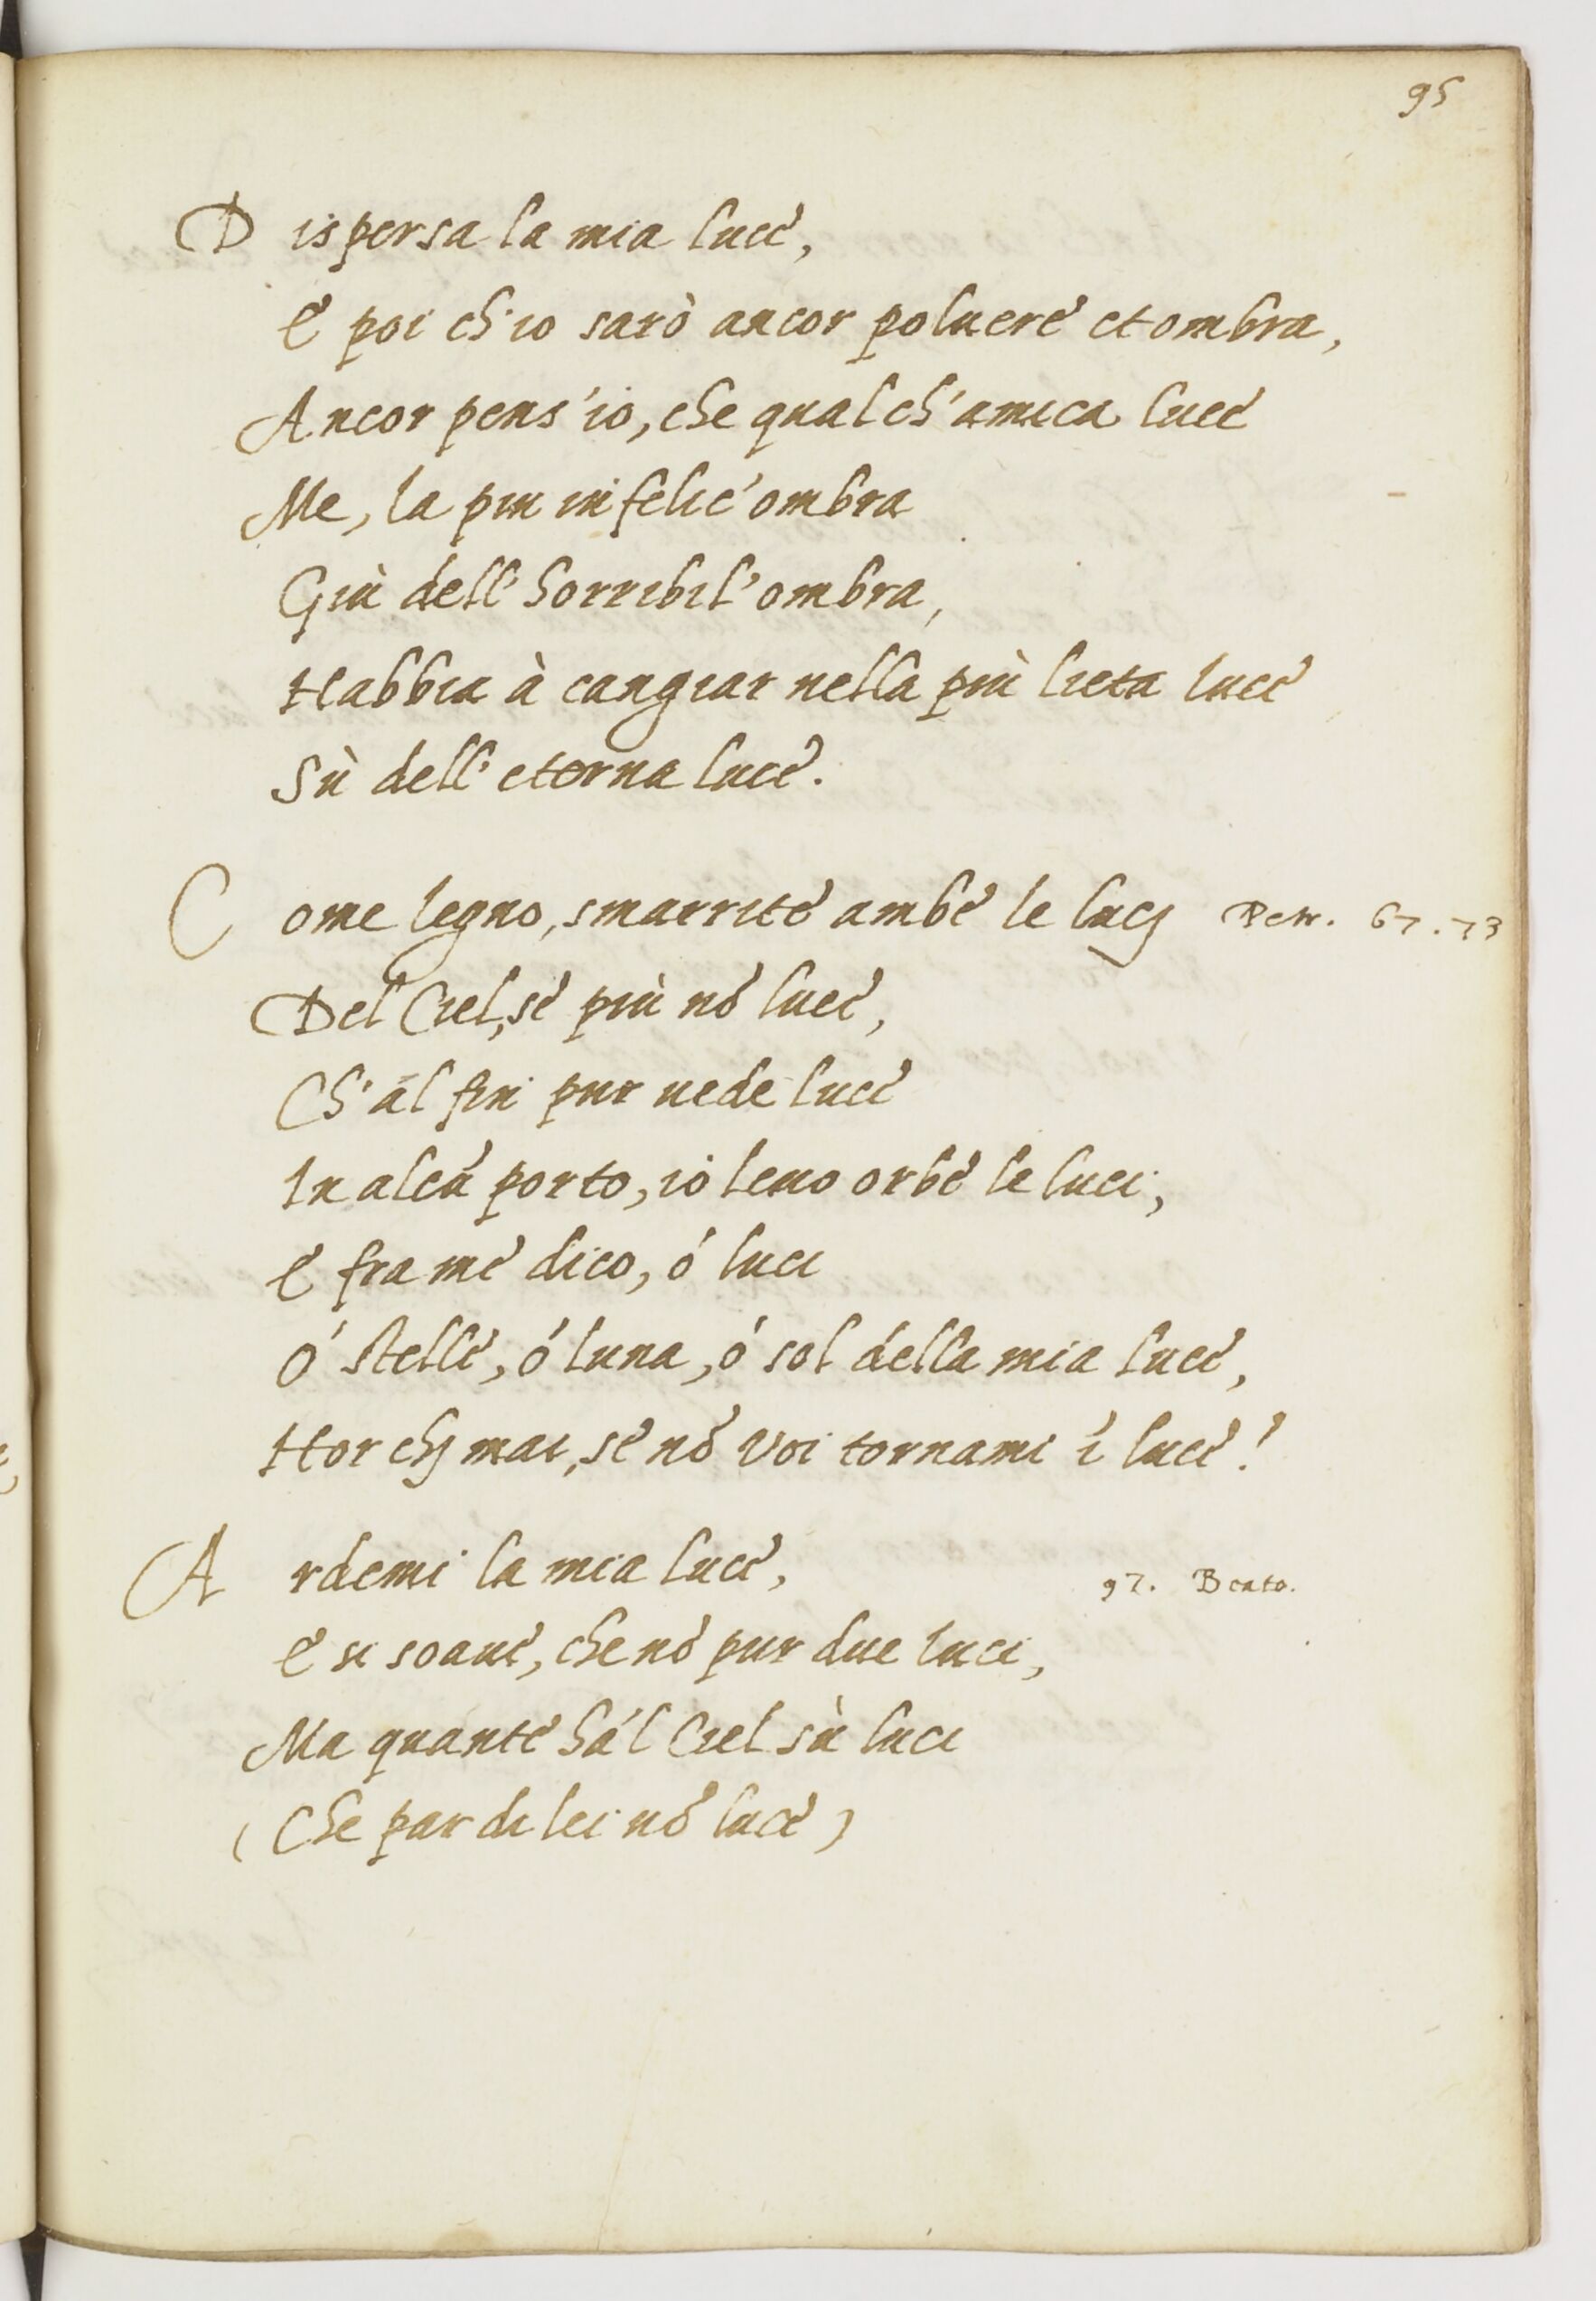 95
Dispersa la mia luce,
E poi ch'io sarò ancor poluere et ombra,
Ancor pens'io, che qualch'amica luce
Me, la piu infelic'ombra
Giù dell'horribil'ombra,
Habbia à cangiar nella più lieta luce
Sù dell'eterna luce.
Come legno, smarrite ambe le lucj Petr. 67.73
Del Ciel, se più nõ luce,
Ch'al fin pur uede luce
In alcũ porto, io leuo orbe le luci,
E fra me dico, ó luci
Ó stelle, ó luna, ó sol della mia luce,
Hor chj mai, se nõ voi tornami ĩ luce!
Ardemi la mia luce, 97. Beato.
E si soaue, che nõ pur due luci,
Ma quante há'l Ciel sù luci
(Che par di lei nõ luce)